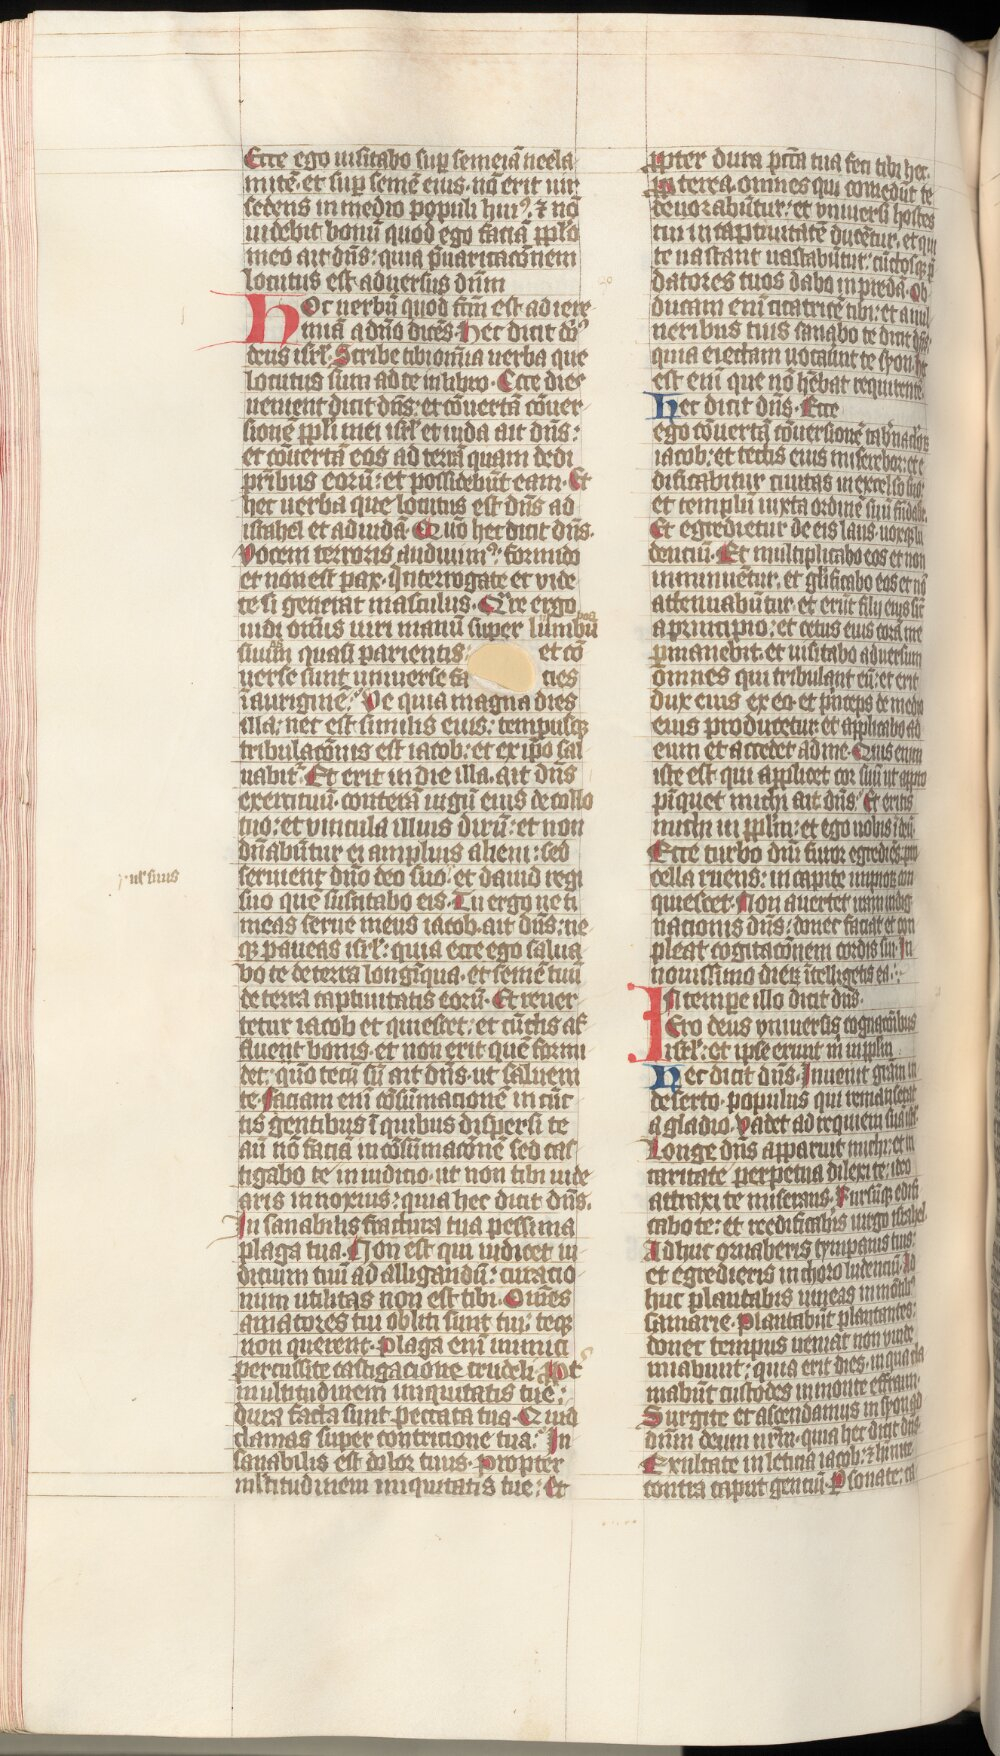 Ecce ego uisitabo sup semeiā neela
mitē· et sup semē eius· nō erit uir
sedens in medio populi huiꝰ· ⁊ nō
uidebit bonū quod ego faciā pplo
meo ait dūs: quia p̄uaricacōnem
locutus est aduersus dūm
Hoc uerbū quod fc̄m est ad iere
miā a dn̄o dicēs· Hec dicit dn̄s
deus isrl̄· Scribe tibi omīa uerba que
locutus sum ad te in libro· Ecce dies
uenient dicit dn̄s: et cōuertā cōuer
sionē ppli mei isrl̄ et iuda ait dn̄s:
et cōuertā eos ad terrā quam dedi
pribus eorū: et possidebūt eam· Et
hec uerba que locutus est dn̄s ad
israhel et ad iudā· Quō hec dicit dn̄s·
Vocem terroris audiuimꝰ: formido
et non est pax· Interrogate et vide
te si generat masculus· Q̄re ergo
uidi om̄is uiri manū super lumbū
suum quasi parientis et cō
uerse sunt uniuerse fa cies
ī auriginē· Ve quia magna dies
illa: nec est similis eius: tempusqꝫ
tribulacōnis est iacob: et ex ip̄o sal
uabit᷑· Et erit in die illa· ait dn̄s
exercituū· conterā iugū eius de collo
tuo: et vincula illius dirū: et non
dn̄abūtur ei amplius alieni: sed
seruient dn̄o deo suo: et dauid regi
vl̄ suus
suo que suscitabo eis· Tu ergo ne ti
meas serue meus iacob· ait dn̄s: ne
qꝫ paueas isrl̄: quia ecce ego salua
bo te de terra longīqua· et semē tuū
de terra captiuitatis eorū· Et reuer
tetur iacob et quiescet: et cūctis af
fluent bonis· et non erit quē formi
det: quō tecū sū ait dn̄s· ut saluem
te· Faciam enī cōsūmacionē in cūc
tis gentibus ī quibus dispersi te
aū nō faciā in cōsūmacōnē sed cas
tigabo te in iudicio· ut non tibi uide
aris innoxius: quia hec dicit dn̄s·
In sanabilis fractura tua pessima
plaga tua· Non est qui iudicet iu
dicium tuū ad alligandū: curacio
num utilitas non est tibi· Om̄es
amatores tui obliti sunt tui: teqꝫ
non querent· Plaga enī inimici
percussi te castigacione crudeli· Pp̄t
multitudinem iniquitatis tue:
dura facta sunt peccata tua· Quid
clamas super contricione tua· In
sanabilis est dolor tuus· Propter
mltitudinem iniquitatis tue: Et
ppter dura pccā tua feci tibi hec·
Pp̄terea· omnes qui comedūt te
deuorabūtur: et vniuersi hostes
tui in captiuitatē ducētur· et qui
te uastant uastabūtur: cūctosqꝫ p̄
datores tuos dabo in predā· Ob
ducam enī cicatricē tibi: et a uul
neribus tuis sanabo te dicit dn̄s
quia eiectam uocauīt te syon· hec
est enī que nō hēbat requirentē·
Hec dicit dn̄s· Ecce
ego cōuertā cōuersionē tab̄naclōꝝ
iacob: et tectis eius miserebor: et e
dificabitur ciuitas in excelso suo:
et templū iuxta ordinē suū fūdabit᷑·
Et egredietur de eis laus· uoxqꝫ lu
dencium· Et multiplicabo eos et non
inminuētur· et glificabo eos et nō
attenuabūtur· et erūt filij eius sic̄
a principio: et cetus eius corā me
p̄manebit· et uisitabo aduersum
omnes qui tribulant eū: et erit
dux eius ex eo· et p̄nceps de medio
eius producetur: et applicabo ad
eum et accedet ad me· Quis enim
iste est qui applicet cor suū ut appro
pinquet michi ait dn̄s· Et eritis
michi in pplm̄: et ego uobis ī deū·
Ecce turbo dn̄i furor egrediēs· pro
cella ruens: in capite impioꝝ con
quiescet· Non auertet iram indig
nacionis dn̄s: donec faciat et com
pleat cogitacōnem cordis sui· In
nouissimo dieꝝ ītelligetis ea:
In tempe illo dicit dn̄s·
Ero deus vniuersis cognacōnibus
isrl̄: et ipse erunt m̄ in pplm̄
Hec dicit dn̄s· Inuenit grām in
deserto· populus qui remanserat
a gladio· Vadet ad requiem suā isrl̄·
Longe dn̄s apparuit michi: et in
caritate perpetua dilexi te: ideo
attraxi te miserans· Rursūqꝫ edifi
cabo te: et reedificabis uirgo israhel·
Adhuc ornaberis tympanis tuis:
et egredieris in choro ludenciū· Ad
huc plantabis uineas in mōtibꝰ
samarie· Plantabūt plantantes:
donec tempus ueniat non vinde
miabunt: quia erit dies· in qua cla
mabūt custodes in monte effraim·
Surgite et ascendamus in syon ad
dn̄m deum nr̄m· quia hec dicit dn̄s·
Exultate in leticia iacob: ⁊ hinnite
contra caput genciū· Psonate: ca